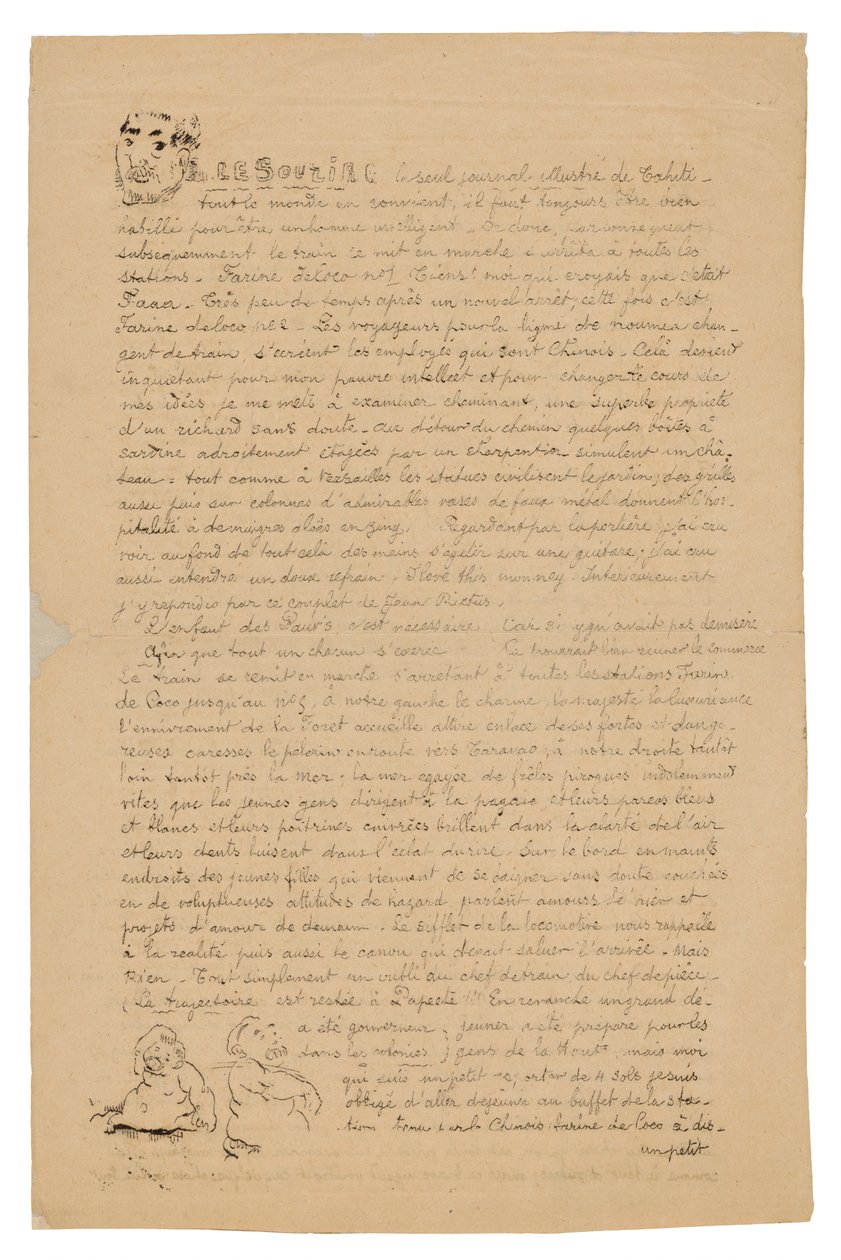 LE SOURIRE le seul journal illustré de Tahiti –
tout le monde en convient, il faut toujours être bien
habillé pour être un homme intelligent – Or donc, par conséquent
subséquemment le train se mit en marche s'arrêta à toutes les
stations – Farine de Coco no 1 Tiens! moi qui croyais que c'était
Faaa – Très peu de temps après un nouvel arrêt, cette fois c'est
Farine de coco no 2 – Les voyageurs pour la ligne de noumea chan-
gent de train, s'écrient les employés qui sont Chinois – Celà devient
inquiétant pour mon pauvre intellect et pour changer le cours de
mes idées je me mets à examiner cheminant, une superbe propriété
d'un richard sans doute – au détour du chemin quelques boites à
sardine adroitement étagées par un charpentier simulent un châ-
teau = tout comme à Versailles les statues civilisent le jardin, des grilles
aussi puis sur colonnes d'admirables vases de faux métal donnent l'hos-
pitalité à de maigres aloès en zing. Regardant par la portière j'ai cru
voir au fond de tout celà des mains s'agiter sur une guitare; j'ai cru
aussi entendre un doux refrain – I love this monney. Intérieurement
j'y répondis par ce couplet de Jean Rictus.
L'en faut des Pauv's, c'est nécessaire Car si yg n'avait pas de misère
Afin que tout un chacun s'exerce Ca pourrait bien ruiner le commerce
Le train se remit en marche s'arretant à toutes les stations Farine
de Coco jusqu'au no 5. à notre gauche le charme, la majesté la luxuriance
l'enivrement de la Foret accueille attire enlace de ses fortes et dange-
reuses caresses le pelerin en route vers Taravao, à notre droite tantôt
loin tantôt près la mer; la mer egayée de frêles pirogues indolemment
vites que les jeunes gens dirigent à la pagaie et leurs pareos bleus
et blancs et leurs poitrines cuivrées brillent dans la clarté de l'air
et leurs dents luisent dans l'éclat du rire. Sur le bord en maints
endroits des jeunes filles qui viennent de se baigner sans doute couchées
en de voluptueuses attitudes de hazard, parlent amours d'hier et
projets d'amour de demain. Le sifflet de la locomotive nous rappelle
à la realité puis aussi le canon qui devait saluer l'arrivée – Mais
Rien – Tout simplement un oubli du chef de train, du chef de pièce –
(La trajectoire est restée à Papeete !!! En revanche un grand dé-
a été gouverneur jeuner a été prepare pour les
dans les colonies) gens de la Haute, mais moi
qui suis un petit reporter de 4 sols je suis
obligé d'aller dejeuner au buffet de la sta-
tion tenu par le Chinois farine de Coco à dis-
un petit